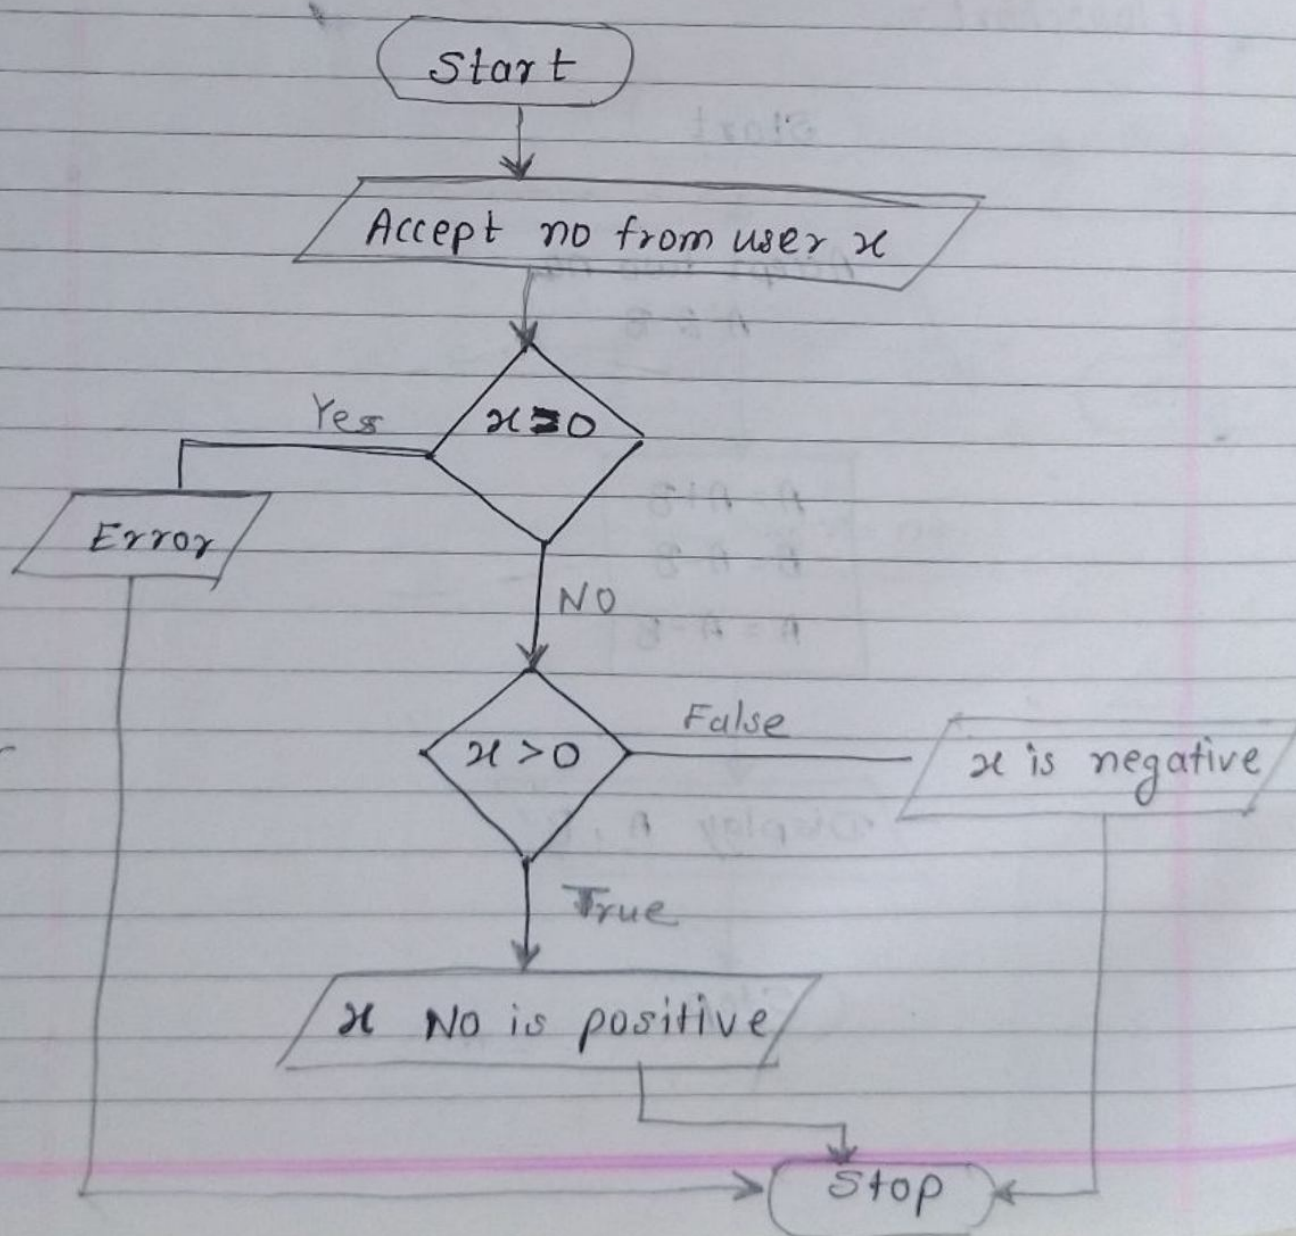 Start
Accept no from user x
x=0
Yes
Error
NO
x>0
False
x is negative
True
x No is positive
Stop